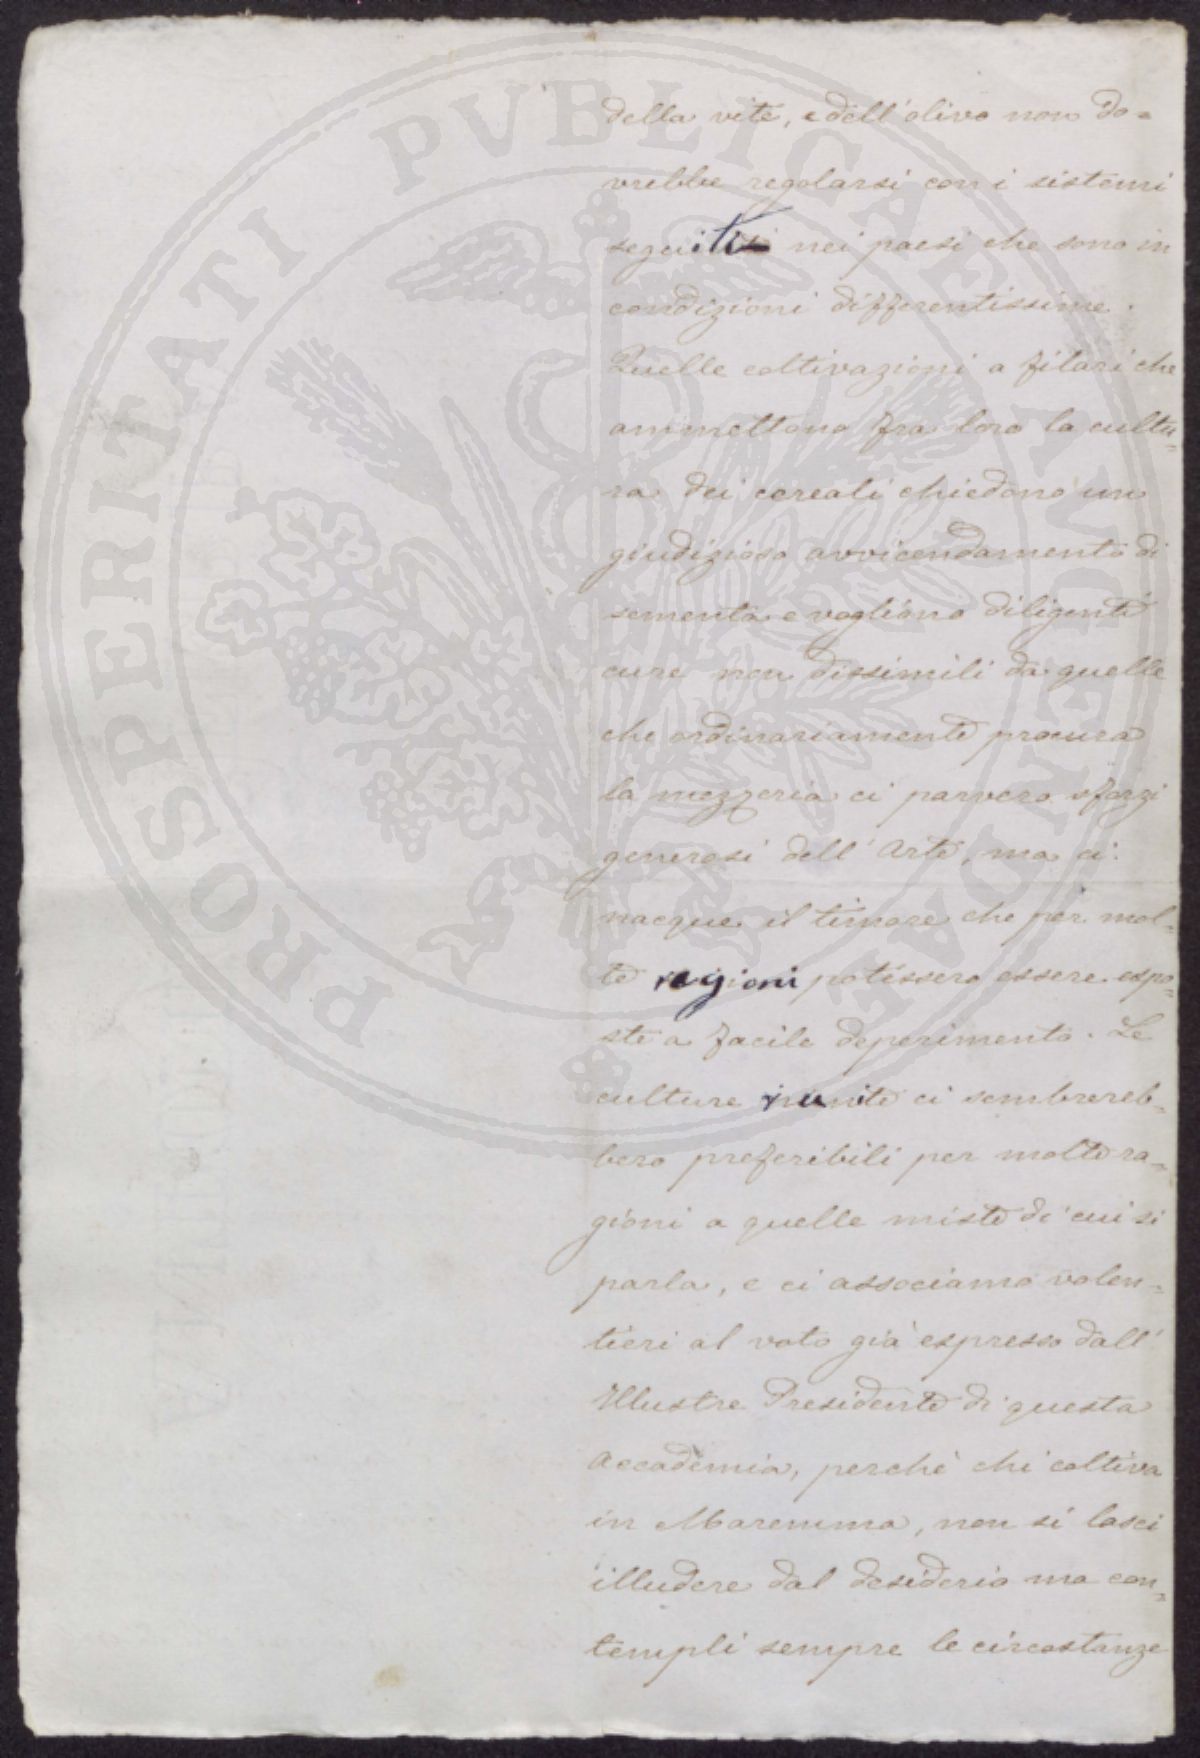 della vite, e dell'olivo non do=
vrebbe regolarsi con i sistemi
seguiti nei paesi che sono in
condizioni differentissime.
Quelle coltivazioni a filari che
ammettono fra loro la cultu=
ra dei cereali chiedono un
giudizioso avvicendamento di
sementa e vogliono diligenti
cure non dissimili da quelle
che ordinariamente procura
la mezzeria ci parvero sforzi
generosi dell'Arte, ma ci
nacque il timore che per mol=
te regioni potessero essere espo=
ste a facile deperimento. Le
culture riunite ci sembrereb=
bero preferibili per molte ra=
gioni a quelle miste di cui si
parla, e ci associamo volen=
tieri al voto già espresso dall'
Illustre Presidente di questa
Accademia, perchè chi coltiva
in Maremma, non si lasci
illudere dal desiderio ma con=
templi sempre le circostanze
PROSPERITATI PVBLICAE AVGENDAE